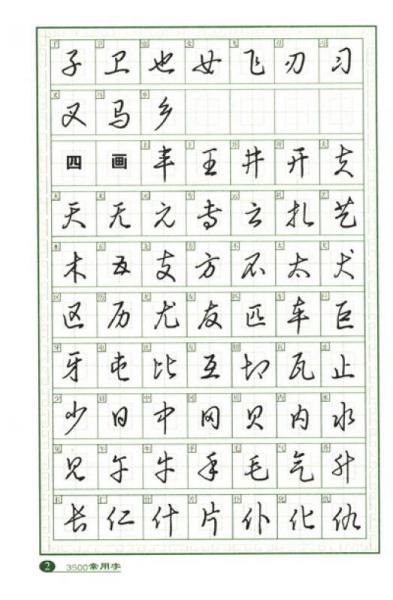 子 卫 也 女 飞 刃 习
叉 马 乡
四 画 丰 王 井 开 夫
天 无 元 专 云 扎 艺
木 五 支 厅 不 太 犬
区 历 尤 友 匹 车 巨
牙 屯 比 互 切 瓦 止
少 日 中 冈 贝 内 水
见 午 牛 手 毛 气 升
长 仁 什 片 仆 化 仇
2 3500常用字